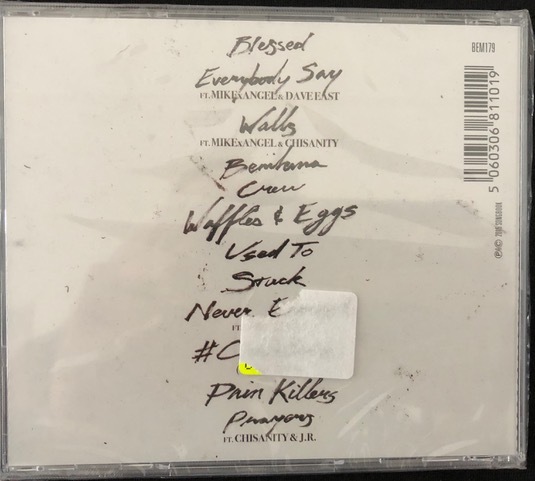 Blessed
Everybody Say
FT. MIKExANGEL & DAVE EAST
Walls
FT. MIKExANGEL & CHISANITY
Benihana
Crew
Waffles & Eggs
Used To
Stuck
Never
FT.
#C
Pain Killers
Prayers
FT. CHISANITY & J.R.
BEM179
5 060306 811019